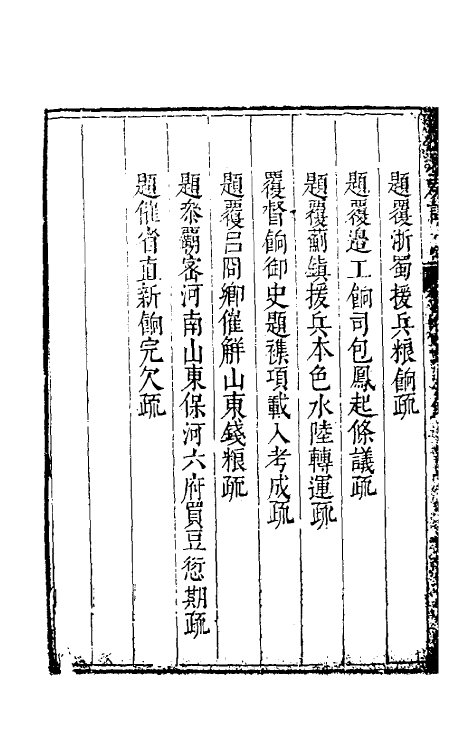 題覆浙蜀援兵粮餉疏
題覆邉工餉司包鳳起條議疏
題覆薊鎮援兵本色水陸轉運疏
覆督餉御史題襍項載入考成疏
題覆呂冏卿催觧山東錢粮疏
題叅覇宻河南山東保河六府買豆愆期疏
題催省直新餉完欠疏